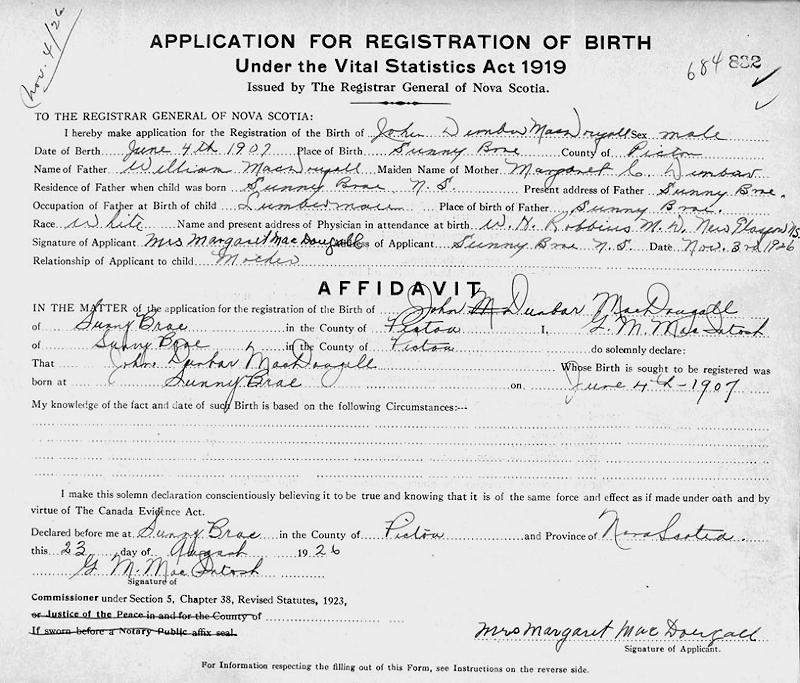 Nov. 4/26
APPLICATION FOR REGISTRATION OF BIRTH
Under the Vital Statistics Act 1919
684 882
Issued by The Registrar General of Nova Scotia.
TO THE REGISTRAR GENERAL OF NOVA SCOTIA:
I hereby make application for the Registration of the Birth of John Dunbar MacDougall Sex male
Date of Birth June 4th 1907 Place of Birth Sunny Brae County of Pictou
Name of Father William MacDougall Maiden Name of Mother Margaret C. Dunbar
Residence of Father when child was born Sunny Brae N. S. Present address of Father Sunny Brae.
Occupation of Father at Birth of child Lumberman Place of birth of Father Sunny Brae.
Race White Name and present address of Physician in attendance at birth W. H. Robbins M. D. New Glasgow N.S.
Signature of Applicant Mrs Margaret MacDougall Address of Applicant Sunny Brae N. S. Date Nov. 3rd 1926
Relationship of Applicant to child Mother
AFFIDAVIT
IN THE MATTER of the application for the registration of Birth of John M Dunbar MacDougall
of Sunny Brae in the County of Pictou I, G. M. MacIntosh
of Sunny Brae in the County of Pictou do solemnly declare:
That John Dunbar MacDougall Whose Birth is sought to be registered was
born at Sunny Brae on June 4th - 1907
My knowledge of the fact and date of such Birth is based on the following Circumstances:--
I make this solemn declaration conscientiously believing it to be true and knowing that it is of the same force and effect as if made under oath and by
virtue of The Canada Evidence Act.
Declared before me at Sunny Brae in the County of Pictou and Province of Nova Scotia.
this 23 day of August 1926
G. M. MacIntosh
Signature of
Commissioner under Section 5, Chapter 38, Revised Statutes, 1923,
or Justice of the Peace in and for the County of
If sworn before a Notary Public affix seal.
Mrs Margaret MacDougall
Signature of Applicant.
For Information respecting the filling out of this Form, see Instructions on the reverse side.